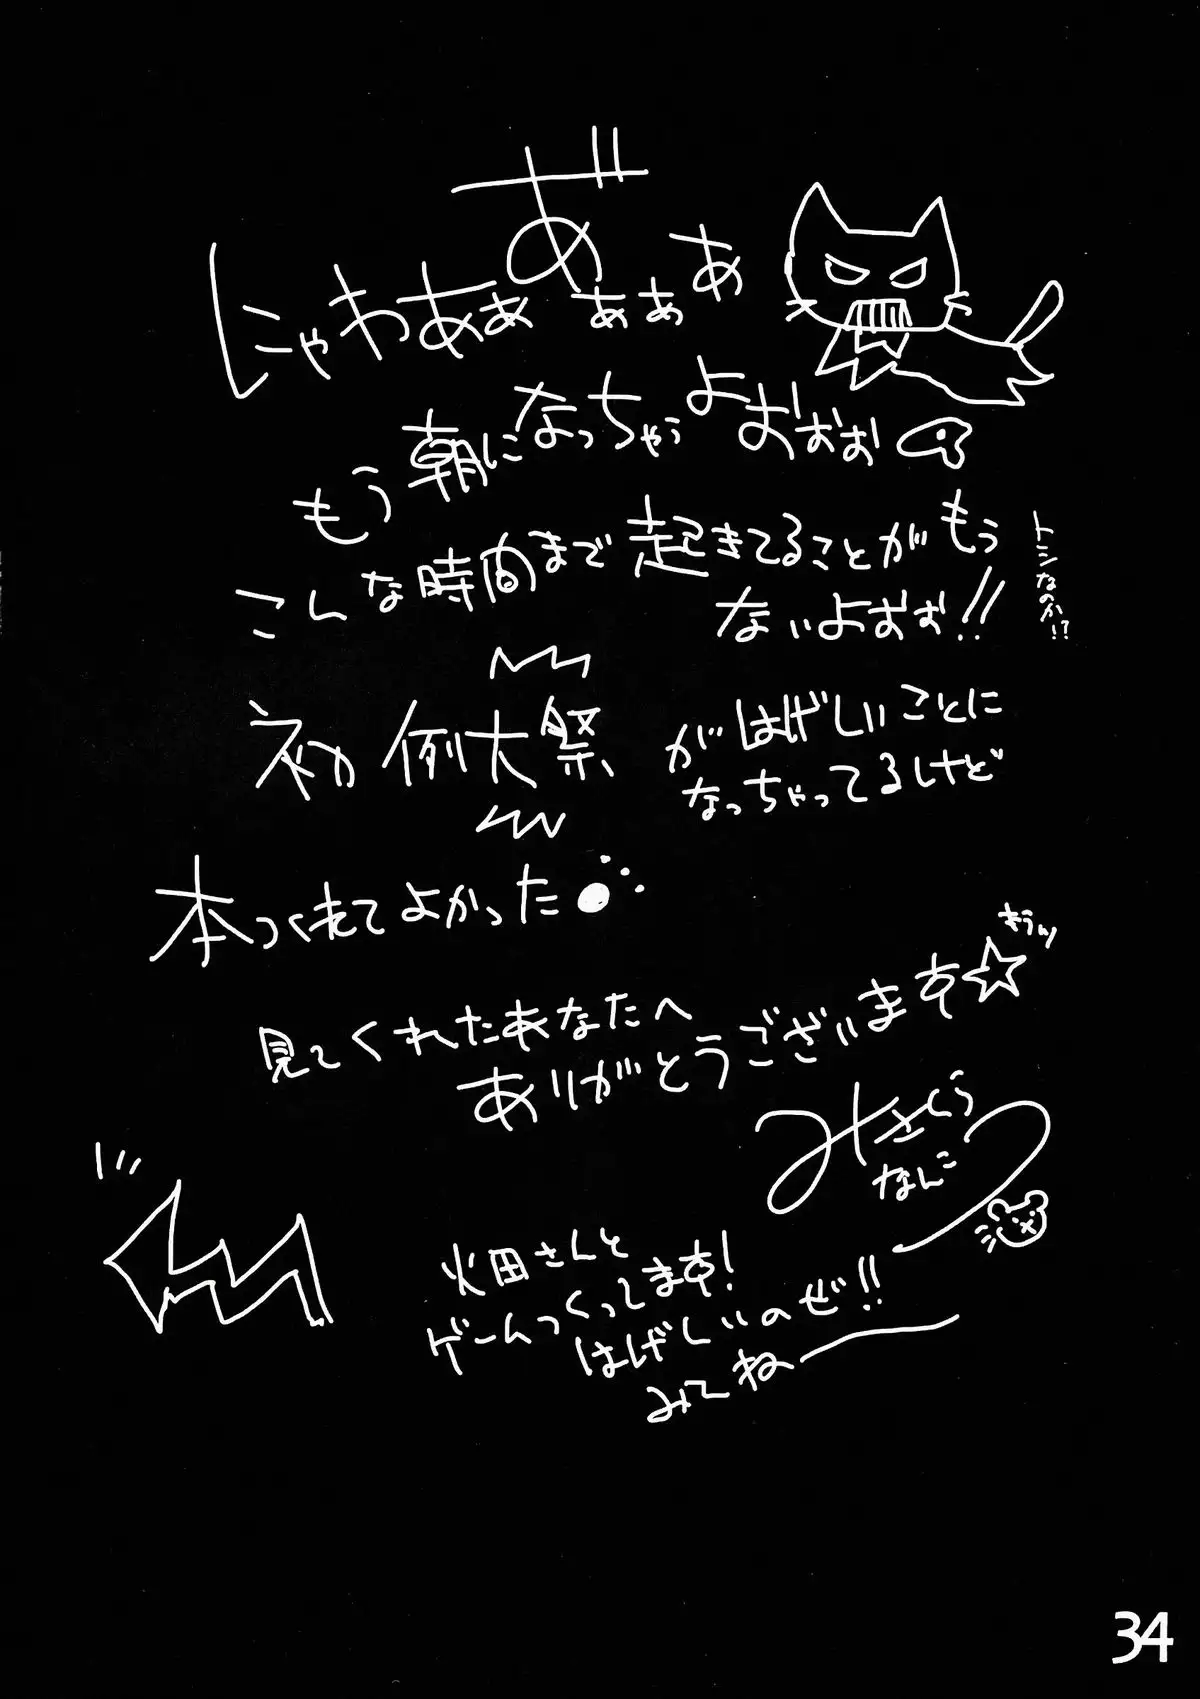 にゃわああぁあ゙ぁぁぁあ
もう朝になっちゃうよおおぉぉ
こんな時間まで起きてることがもう
ないよおぉぉ!!
トシなのか!?
初例大祭
がはげしいことに
なっちゃってるけど
本つくれてよかった
見てくれたあなたへ
ありがとうございます☆
みさくら
なんこつ
火田さんと
ゲームつくってます!
はげしいのぜ!!
みてねー
34